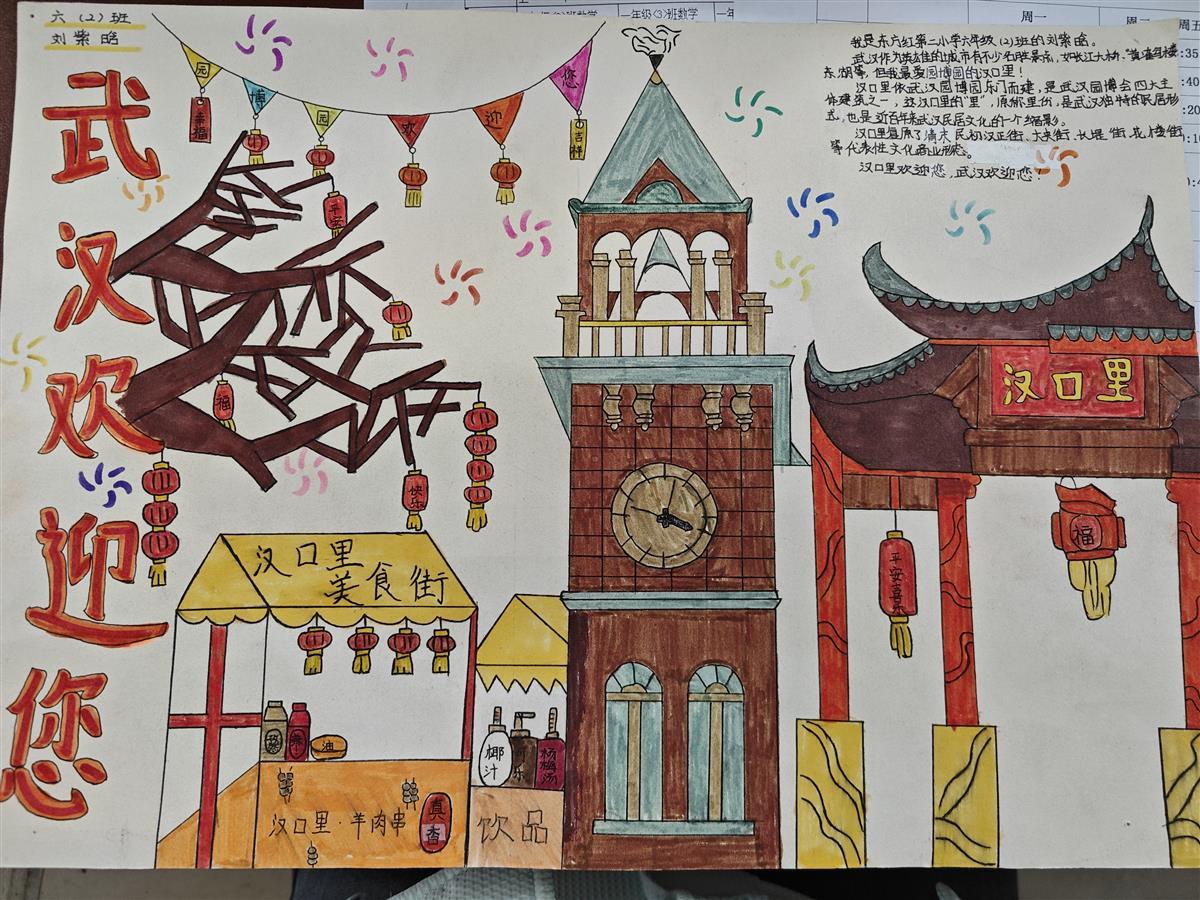 六（2）班
刘紫晗
武汉欢迎您
园
博
园
欢
迎
您
幸福
吉祥
平安
福
快乐
我是东方红第二小学六年级（2）班的刘紫晗。
武汉作为英雄的城市有不少名胜景点，如长江大桥、黄鹤楼
东湖等，但我最爱园博园的汉口里！
汉口里依武汉园博园东门而建，是武汉园博会四大主
体建筑之一，这汉口里的“里”，原本里份，是武汉独特的民居形
式，也是近百年来武汉民居文化的一个缩影。
汉口里复原了清末民初汉正街、大夹街、长堤街、花楼街
等代表性文化商业形态。
汉口里欢迎您，武汉欢迎您！
汉口里
福
平安喜乐
汉口里
美食街
油
汉口里·羊肉串
真香
椰汁
可乐
杨梅汤
饮品
一年级〈3〉班数学
周一